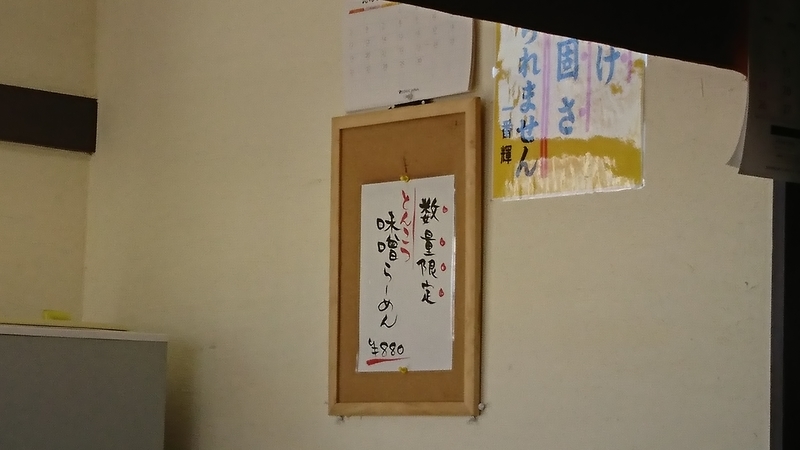 数量限定
とんこつ
味噌らーめん
¥880
け
固さ
られません
一番輝